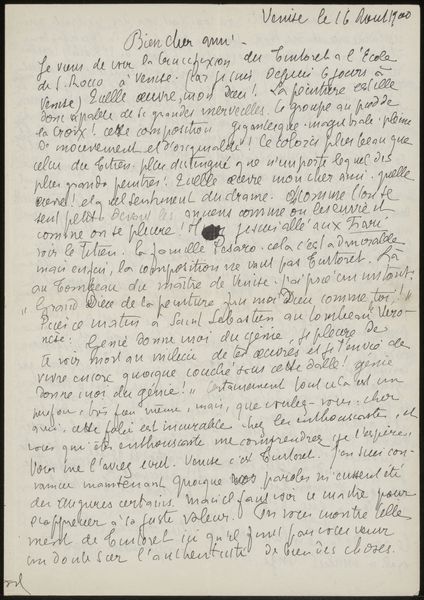 Venise le 16 Aout 1900
Bien cher ami.
Je viens de voir la Crucifixion du Tintoret a l'Ecole
de S. Rocco à Venise. (car je suis depuis 6 jours à
Venise) Quelle œuvre, mon Dieu! La peinture est-elle
donc capable de si grandes merveilles. Le groupe au pied de
la Croix! cette composition gigantesque, magistrale, pleine
de mouvement et d'originalité! Ce coloris plus beau que
celui du Titien, plus distingué que n'importe lequel des
plus grands peintres! Quelle œuvre mon cher ami, quelle
œuvre! et quel sentiment du drame. Comme l'on se
sent petit devant les anciens comme on les envie et
comme on se pleure! je suis allé aux Frari
voir le Titien. la famille Pesaro. cela c'est admirable
mais aussi, la composition ne vaut pas Tintoret. Là
au tombeau du maître de Venise j'ai prié un instant.
"Grand Dieu de la peinture fais moi Dieu comme toi!"
Puis ce matin à Saint Sebastien au tombeau de Vero-
nèse: "Genie donne moi du génie, je pleure de
te voir mort au milieu de tes œuvres et je t'envie de
vivre encore quoique couché sous cette dalle! génie
donne moi du génie!" Certainement tout cela est un
peu fou, très fou même, mais, que voulez-vous, cher
ami, cette folie est incurable chez les enthousiastes, et
vous qui êtes enthousiaste me comprendrez je l'espère.
Vous me l'avez écrit. Venise c'est Tintoret. J'en suis con-
vaincu maintenant quoique vos paroles m'eussent été
des augures certains. mais il faut voir ce maître pour
l'apprécier à sa juste valeur. On vous montre telle
ment de Tintoret ici qu'il finit par vous venir
un doute sur l'authenticité de bien des choses.